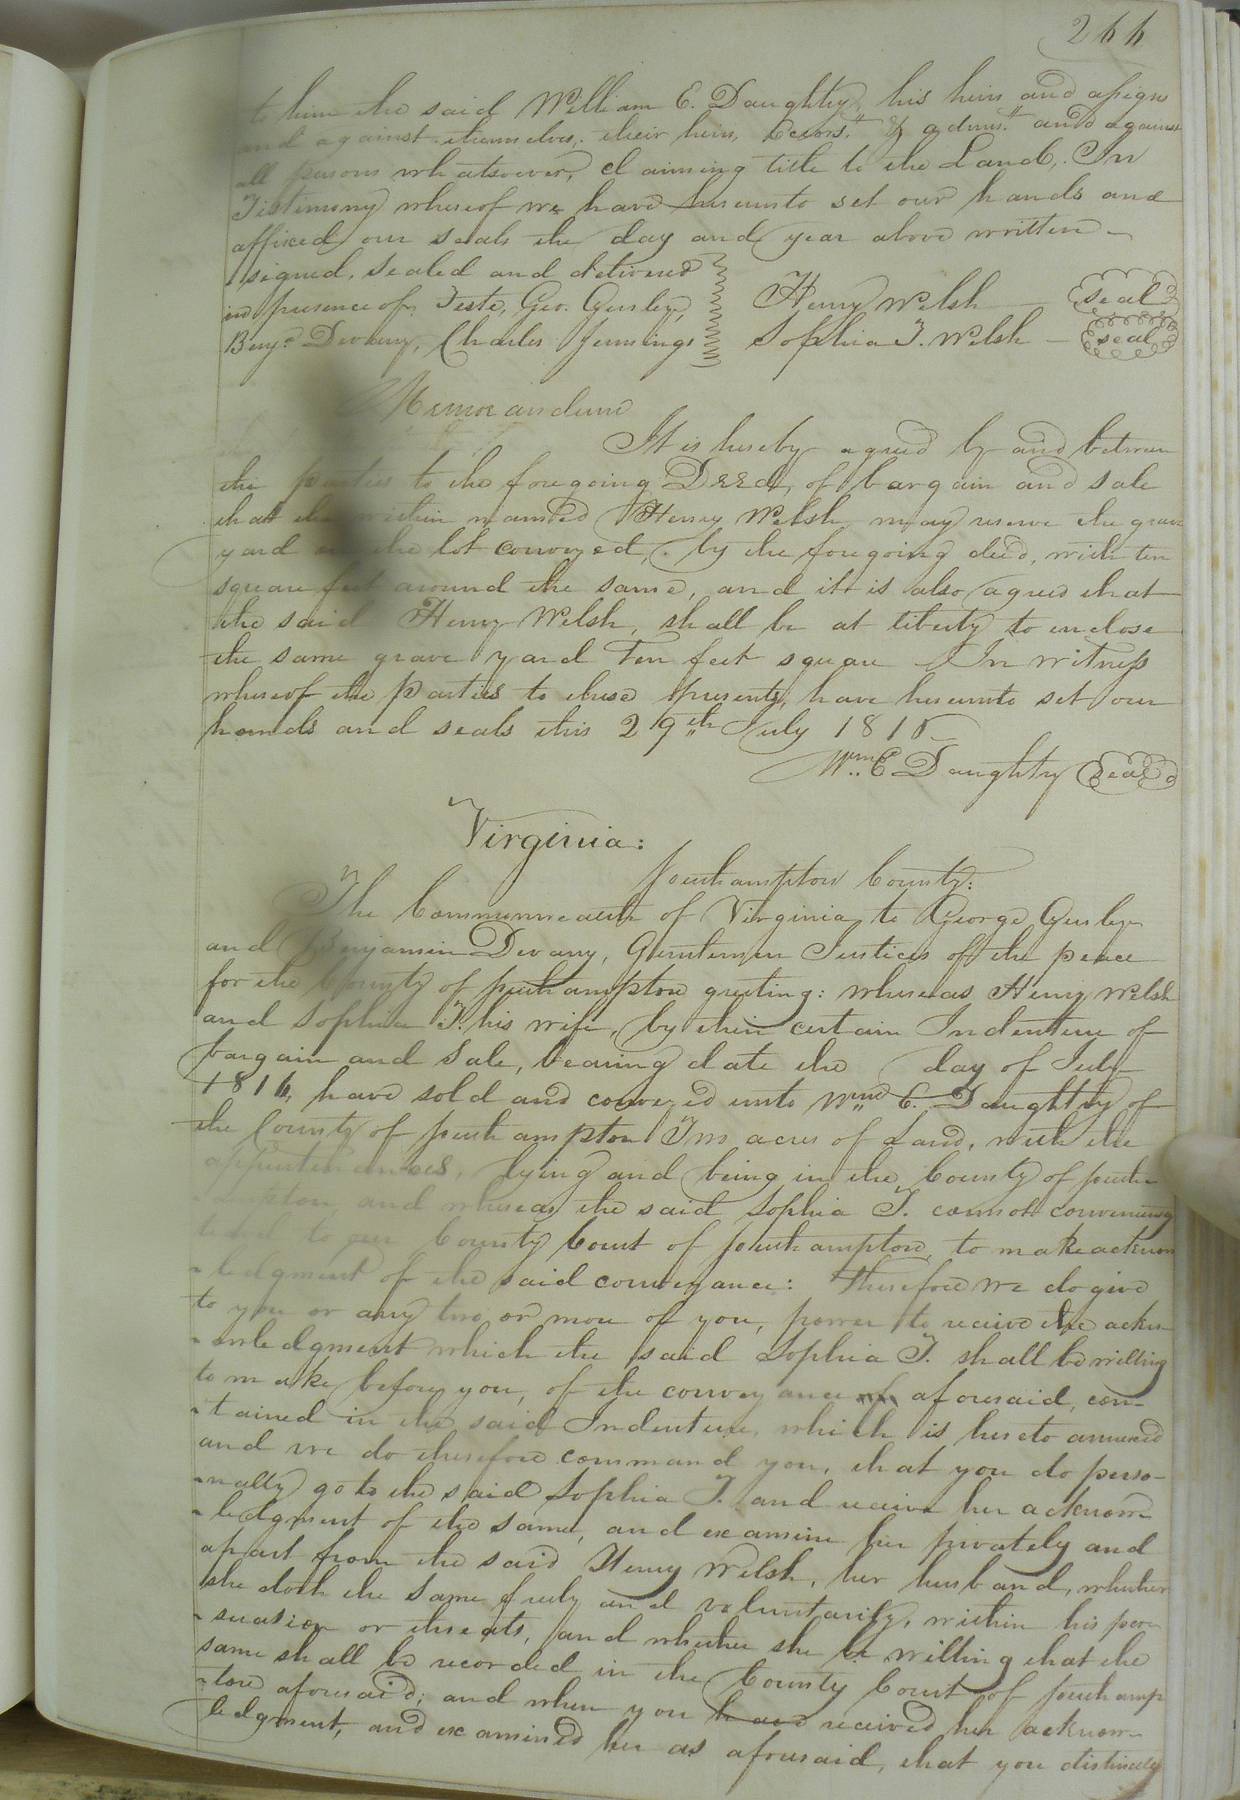 244
to him the said William E. Daughtry, his heirs and assigns
and against themselves, their heirs, Exors. & admrs. and against
all persons whatsoever, claiming title to the Land, In
Testimony whereof we have hereunto set our hands and
affixed our seals the day and year above written
signed, sealed and delivered
in presence of, Teste, Geo. Gurley,
Benjn Devany, Charles Jennings
Henry Welsh seal
Sophia T. Welsh seal
Memorandum
It is hereby agreed by and between
the parties to the foregoing Deed, of bargain and sale
that the within named Henry Welsh may reserve the grave
yard on the lot conveyed, by the foregoing deed, with ten
square feet around the same, and it is also agreed that
the said Henry Welsh, shall be at liberty to enclose
the same grave yard Ten feet square In witness
whereof the parties to these presents, have hereunto set our
hands and seals this 29th July 1815
Wm. E. Daughtry Seal
Virginia:
Southampton County:
The Commonwealth of Virginia to George Gurley
and Benjamin Devany, Gentlemen Justices of the peace
for the County of Southampton greeting: whereas Henry Welsh
and Sophia T. his wife, by their certain Indenture of
bargain and Sale, bearing date the day of July
1814, have sold and conveyed unto Wm. E. Daughtry of
the County of Southampton Two acres of Land, with the
appurtenances, lying and being in the County of South-
-ampton, and whereas the said Sophia T. cannot conveniently
travel to our County Court of Southampton, to make acknow
-ledgment of the said conveyance: Therefore we do give
to you or any two or more of you, power to receive the ackn-
-owledgment which the said Sophia T. shall be willing
to make before you, of the conveyance aforesaid, con-
-tained in the said Indenture, which is hereto annexed
and we do therefore command you, that you do perso-
-nally go to the said Sophia T. and receive her acknow-
-ledgment of the same, and examine her privately and
apart from the said Henry Welsh, her husband, whether
she doth the same freely and voluntarily, within his per-
-suasion or threats, and whether she be willing that the
same shall be recorded in the County Court of Southamp
-ton aforesaid; and when you have received her acknow-
-ledgment, and examined her as aforesaid, that you distinctly